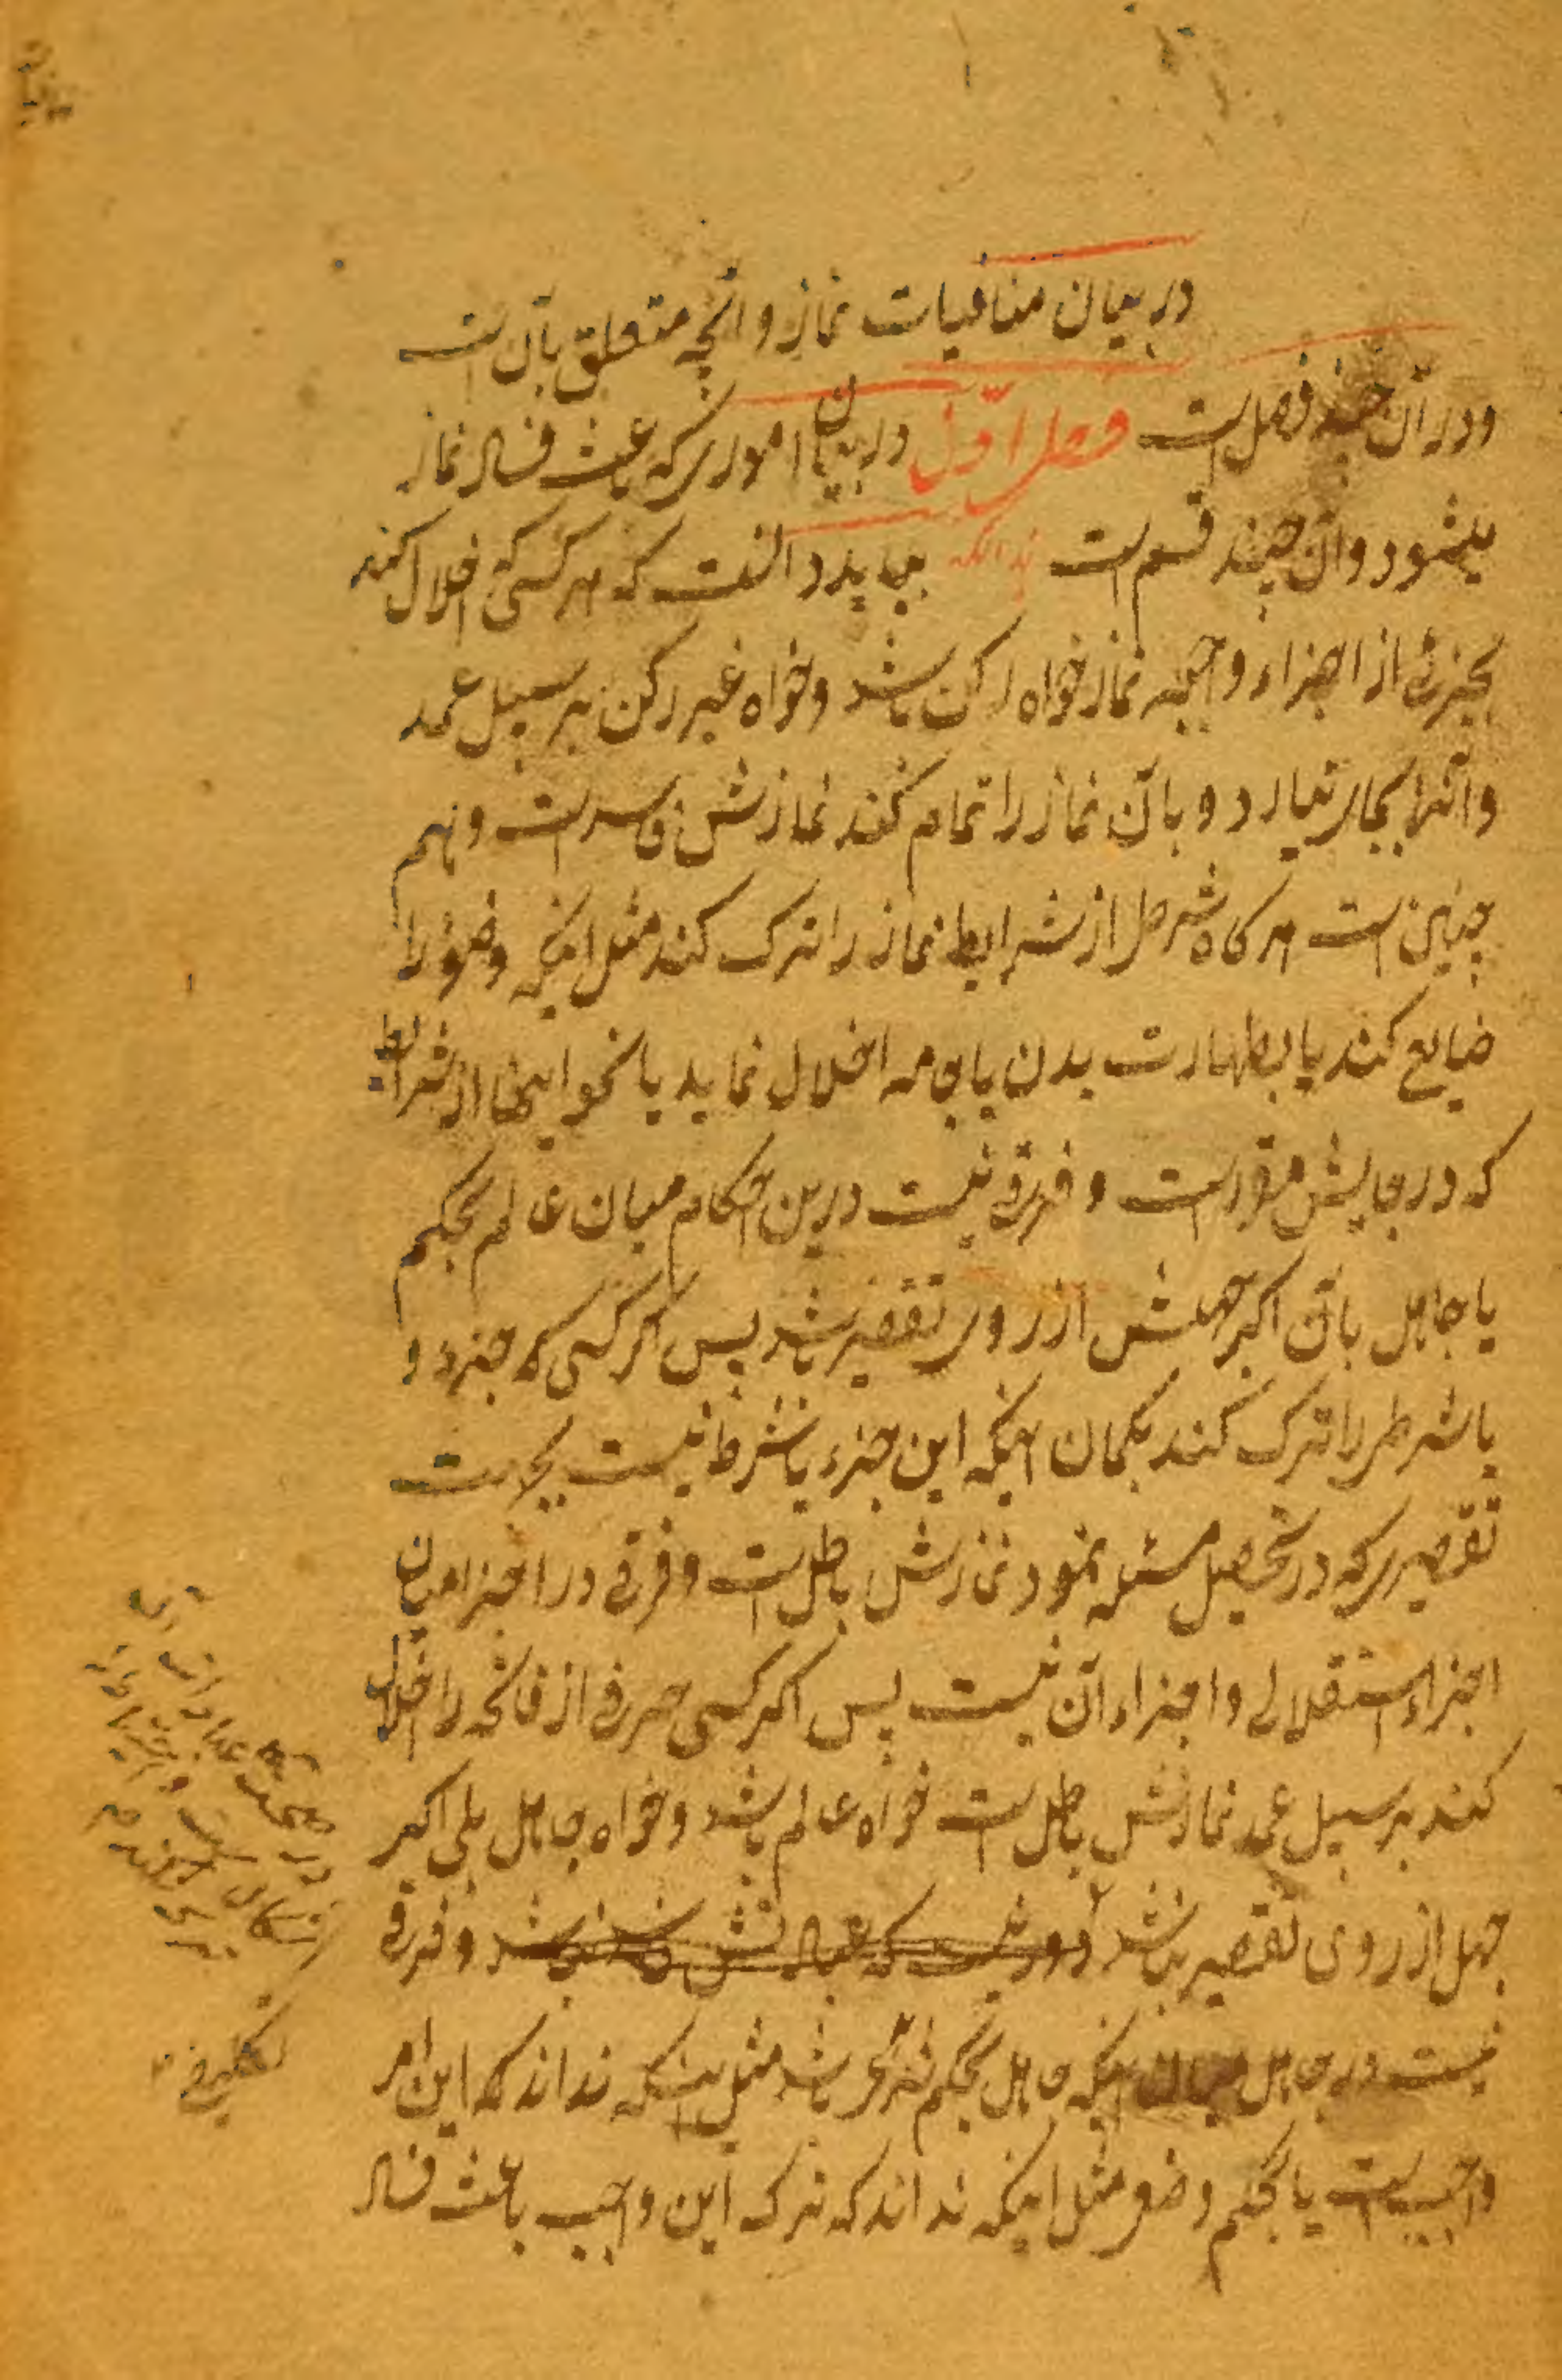 در بیان منافیات نماز و آنچه متعلق بآن است
و در آن چند فصل است فصل اوّل در بیان اموری که باعث فساد نماز
میشود و آن چند قسم است بباید دانست که هر کسی که اخلال کند
بجزئی از اجزاء واجبه نماز خواه رکن باشد و خواه غیر رکن بر سبیل عمد
و آنرا بجای نیارد و با آن نماز را تمام کند نمازش فاسد است و هم
چنین است هر گاه شرطی از شرایط نماز را ترک کند مثل اینکه وضؤ را
ضایع کند یا بطهارت بدن یا جامه اخلال نماید یا نحو اینها از شرایط
که در جایش مقرر است و فرقی نیست درین احکام میان عالم بحکم
یا جاهل بآن اگر جهلش از روی تقصیر باشد پس اگر کسی که جزء و
یا شرطی را ترک کند بگمان اینکه این جزء یا شرط نیست بجهت
تقصیری که در تحصیل مسئله نمود نمازش باطل است و فرقی در اجزا میان
اجزاء استقلالی و اجزاء آن نیست پس اگر کسی حرفی از فاتحه را اخلال
کند بر سبیل عمد نمازش باطل است خواه عالم باشد و خواه جاهل بلی اگر
جهل از روی تقصیر نباشد دور نیست که عبادتش فاسد نباشد و فرقی
نیست در جاهل میان اینکه جاهل بحکم شرعی باشد مثل اینکه نداند که این امر
واجب است یا بحکم وضعی مثل اینکه نداند که ترک این واجب باعث فساد